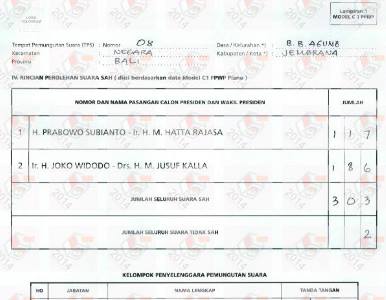 Lampiran 1
MODEL C 1 PPWP
Tempat Pemungutan Suara (TPS) : Nomor 08 Desa / Kelurahan *) : B.B. AGUNG
Kecamatan : NEGARA Kabupaten / Kota *) : JEMBRANA
Provinsi : BALI
IV. RINCIAN PEROLEHAN SUARA SAH ( diisi berdasarkan data Model C1 PPWP Plano )
NOMOR DAN NAMA PASANGAN CALON PRESIDEN DAN WAKIL PRESIDEN JUMLAH
1 H. PRABOWO SUBIANTO - Ir. H. M. HATTA RAJASA 1 1 7
2 Ir. H. JOKO WIDODO - Drs. H. M. JUSUF KALLA 1 8 6
JUMLAH SELURUH SUARA SAH 3 0 3
JUMLAH SELURUH SUARA TIDAK SAH 2
KELOMPOK PENYELENGGARA PEMUNGUTAN SUARA
NO JABATAN NAMA LENGKAP TANDA TANGAN